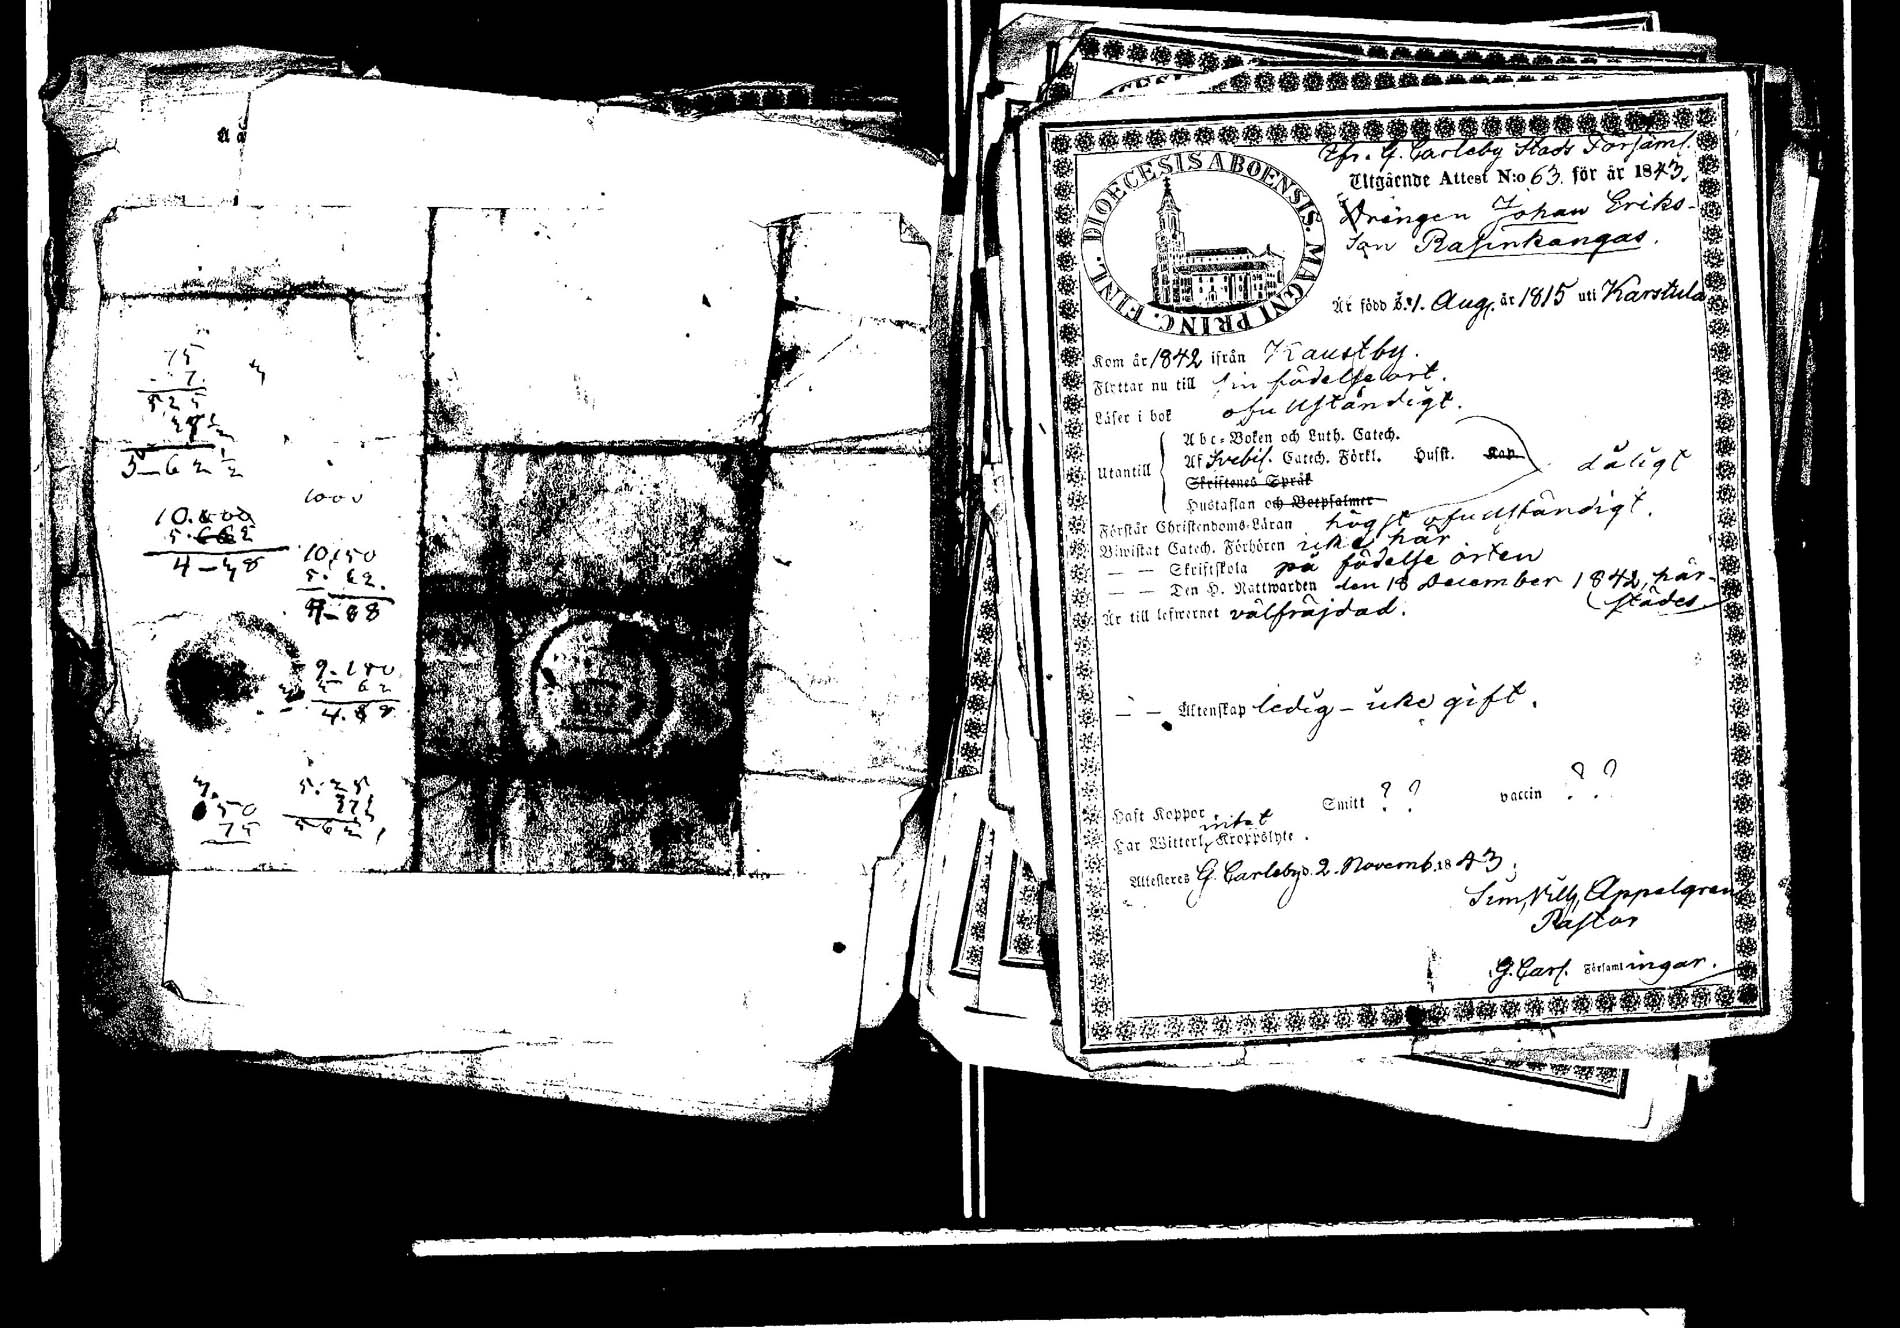 75
7.
525
5-62 1/2
1000
10.000
5.662
4-48
10,50
5. 62.
4-88
9-180
5 62
4.88
50
75
5:25
37 1/2
562
DIOECESIS ABOENSIS. MAGNI PRINC. FINL.
Ifr. G. Carleby Stads Församl.
Utgående Attest N:o 63. för år 1843.
Drängen Johan Eriks-
son Rasinkangas.
Är född d. 1. Aug. år 1815 uti Karstula
Kom år 1842 ifrån Kaustby.
Flyttar nu till sin födelseort.
Läser i bok ofullständigt.
Abc-Boken och Luth. Catech.
Utantill Af Svebil. Catech. Förkl. Hussk. Kap. dåligt
Skriftenes Språk
Hustaflan och Botpsalmer
Förstår Christendoms-Läran högst ofullständigt.
Biwistat Catech. Förhören icke här
— — Skriftskola på födelse orten
— — Den H. Nattwarden den 18 December 1842, här-
städes
Är till lefwernet välfräjdad.
— — Äktenskap ledig - icke gift.
Haft Koppor Smitt ? ? vaccin ? ?
intet
Har Witterl. Kroppslyte.
Attesteres G. Carleby d. 2. Novemb. 1843.
Sim. Vilh. Appelgren
Pastor
G. Carl. Församlingar.